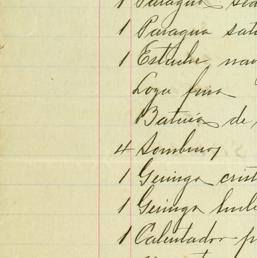 1 Paragua sed
1 Paragua sat
1 Estuche nav
Loza fina
Bateria de
4 Sombreros
1 Geringa crist
1 Geringa
1 Calentador p